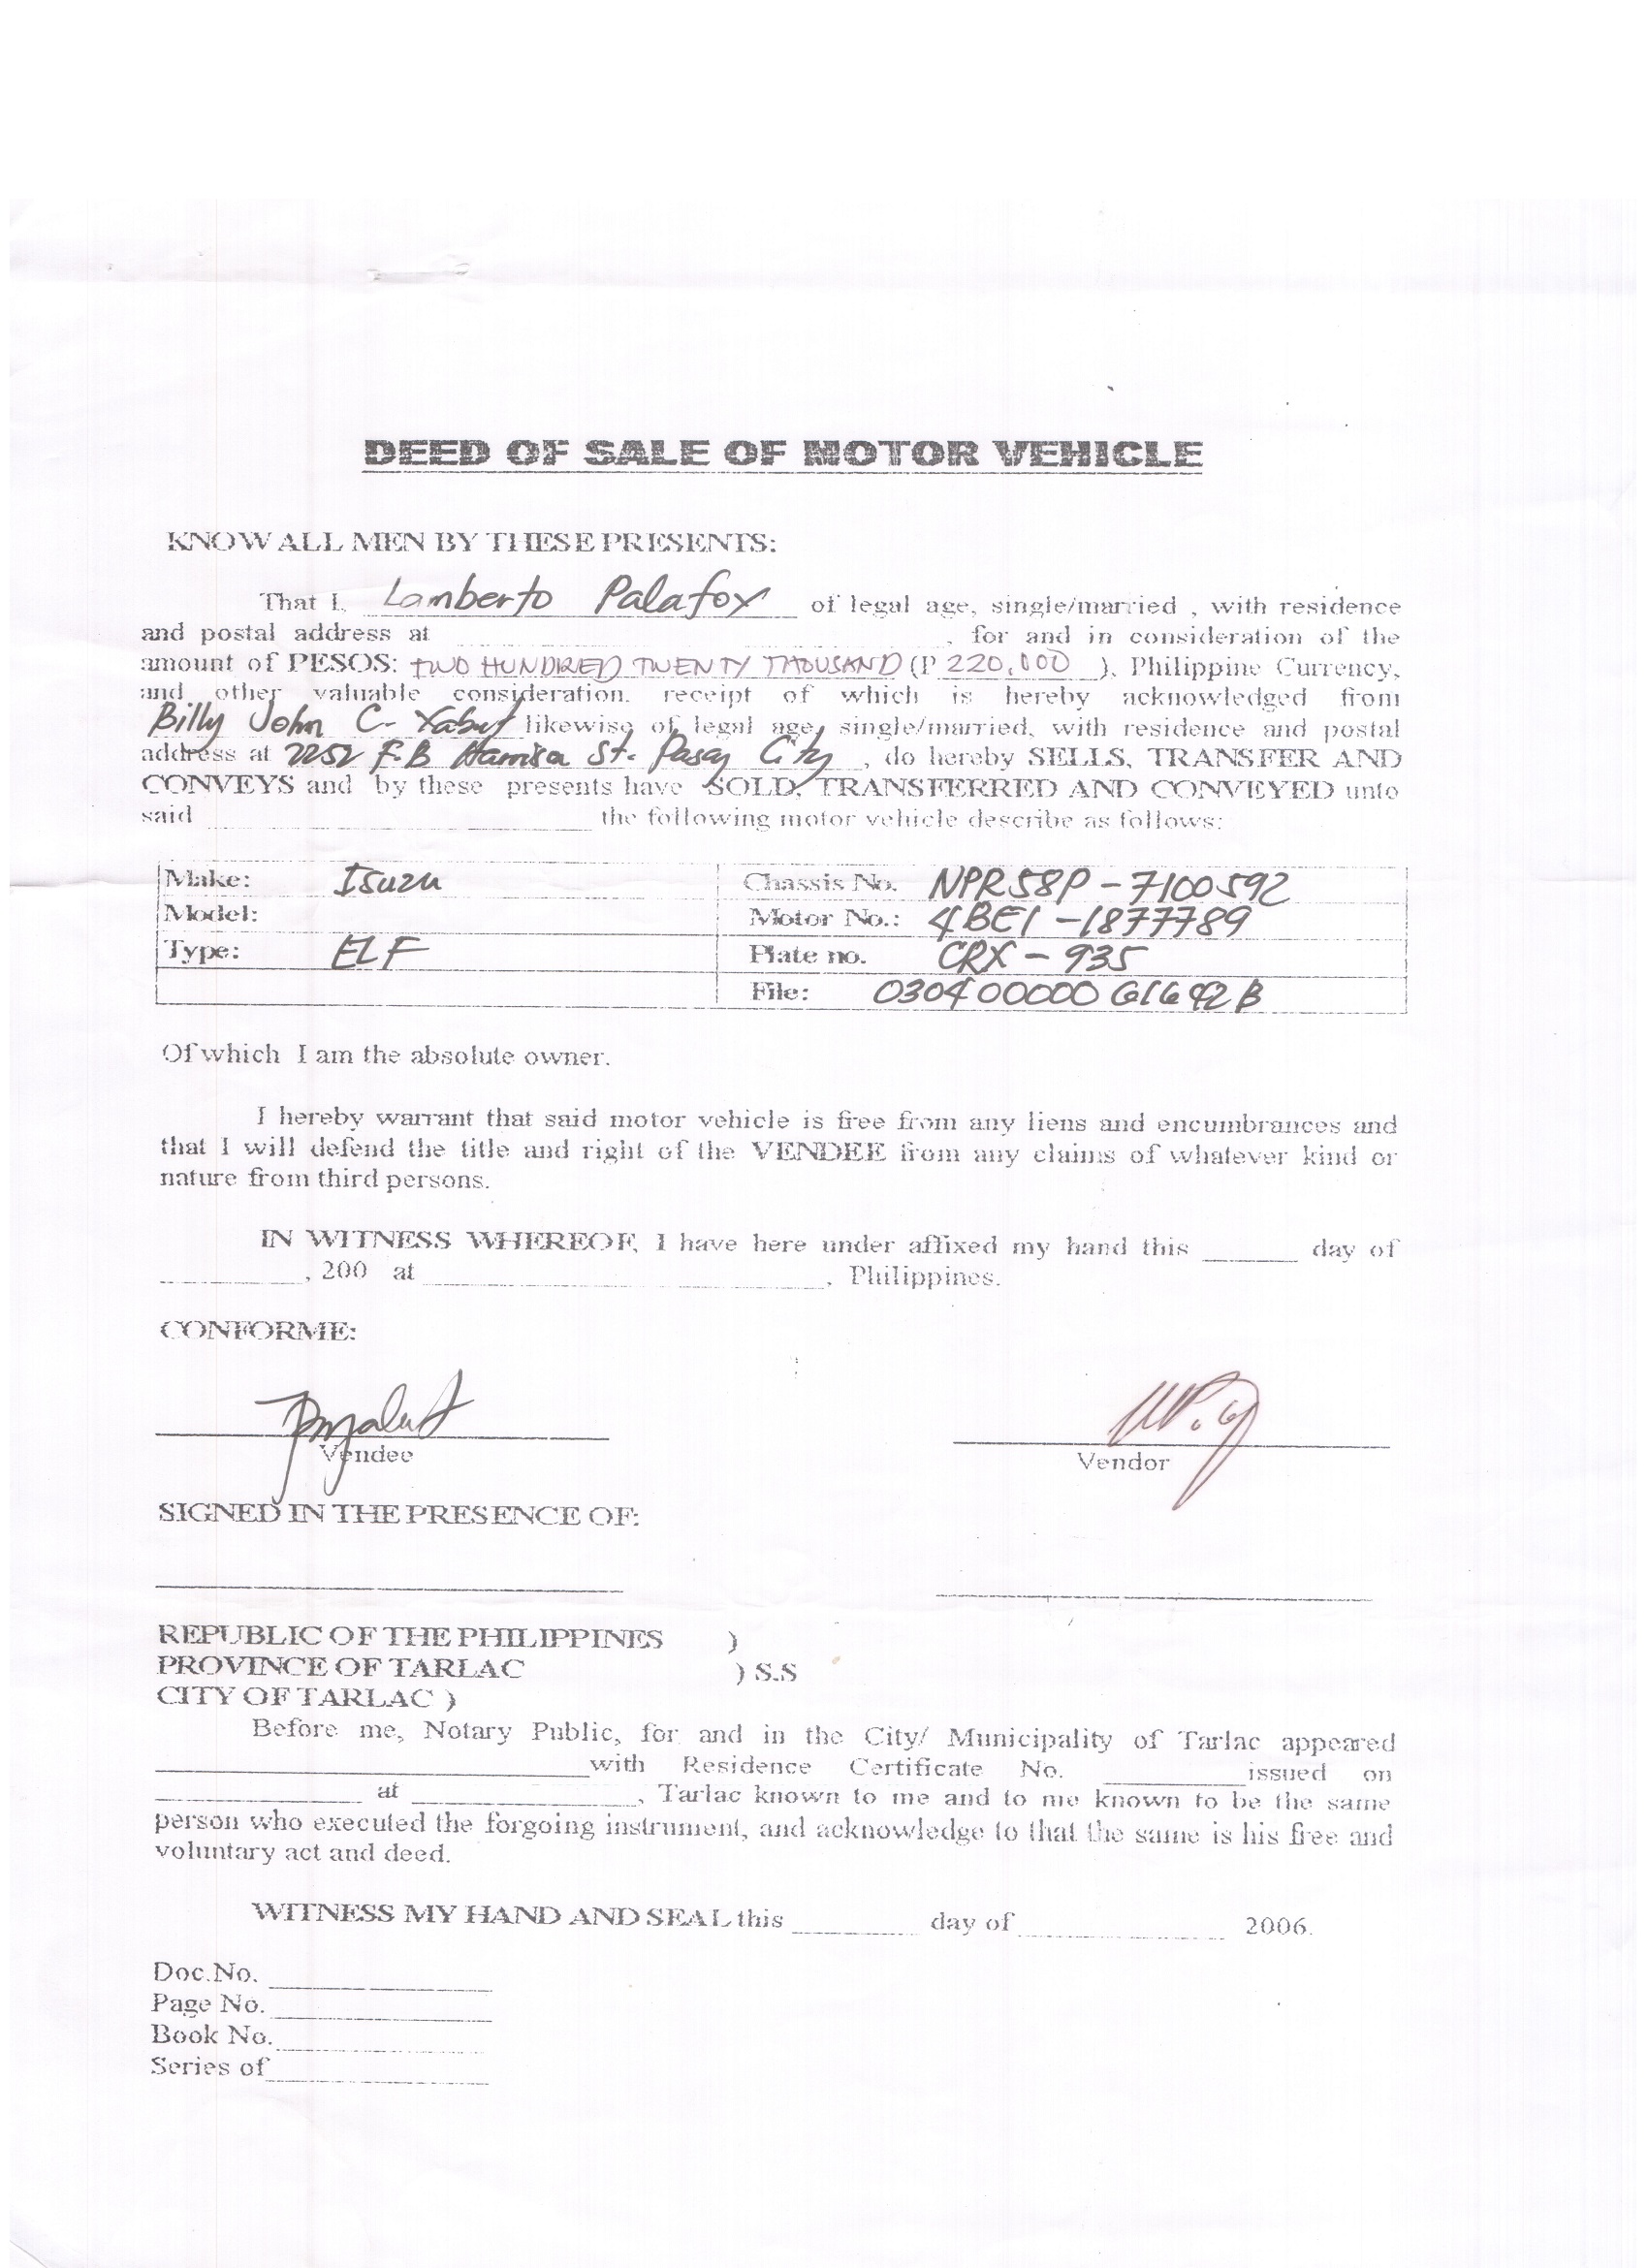 DEED OF SALE OF MOTOR VEHICLE
KNOW ALL MEN BY THESE PRESENTS:
That I, Lamberto Palafox of legal age, single/married , with residence
and postal address at ____________, for and in consideration of the
amount of PESOS: TWO HUNDRED TWENTY THOUSAND (P 220,000 ), Philippine Currency,
and other valuable consideration. receipt of which is hereby acknowledged from
Billy John C. likewise of legal age, single/married, with residence and postal
address at 2252 F.B Harrison St. Pasay City, do hereby SELLS, TRANSFER AND
CONVEYS and by these presents have SOLD, TRANSFERRED AND CONVEYED unto
said ____________ the following motor vehicle describe as follows:
Make: Isuzu Chassis No. NPR58P-7100592
Model: Motor No.: 4BE1-1877789
Type: ELF Plate no. CRX-935
File: 030400000616 92B
Of which I am the absolute owner.
I hereby warrant that said motor vehicle is free from any liens and encumbrances and
that I will defend the title and right of the VENDEE from any claims of whatever kind or
nature from third persons.
IN WITNESS WHEREOF, I have here under affixed my hand this ______ day of
________, 200 at ____________, Philippines.
CONFORME:
Vendee Vendor
SIGNED IN THE PRESENCE OF:
REPUBLIC OF THE PHILIPPINES )
PROVINCE OF TARLAC ) S.S
CITY OF TARLAC )
Before me, Notary Public, for and in the City/ Municipality of Tarlac appeared
____________with Residence Certificate No. ________issued on
____________ at ____________, Tarlac known to me and to me known to be the same
person who executed the forgoing instrument, and acknowledge to that the same is his free and
voluntary act and deed.
WITNESS MY HAND AND SEAL this ______ day of ____________ 2006.
Doc.No. ____________
Page No. ____________
Book No. ____________
Series of ____________